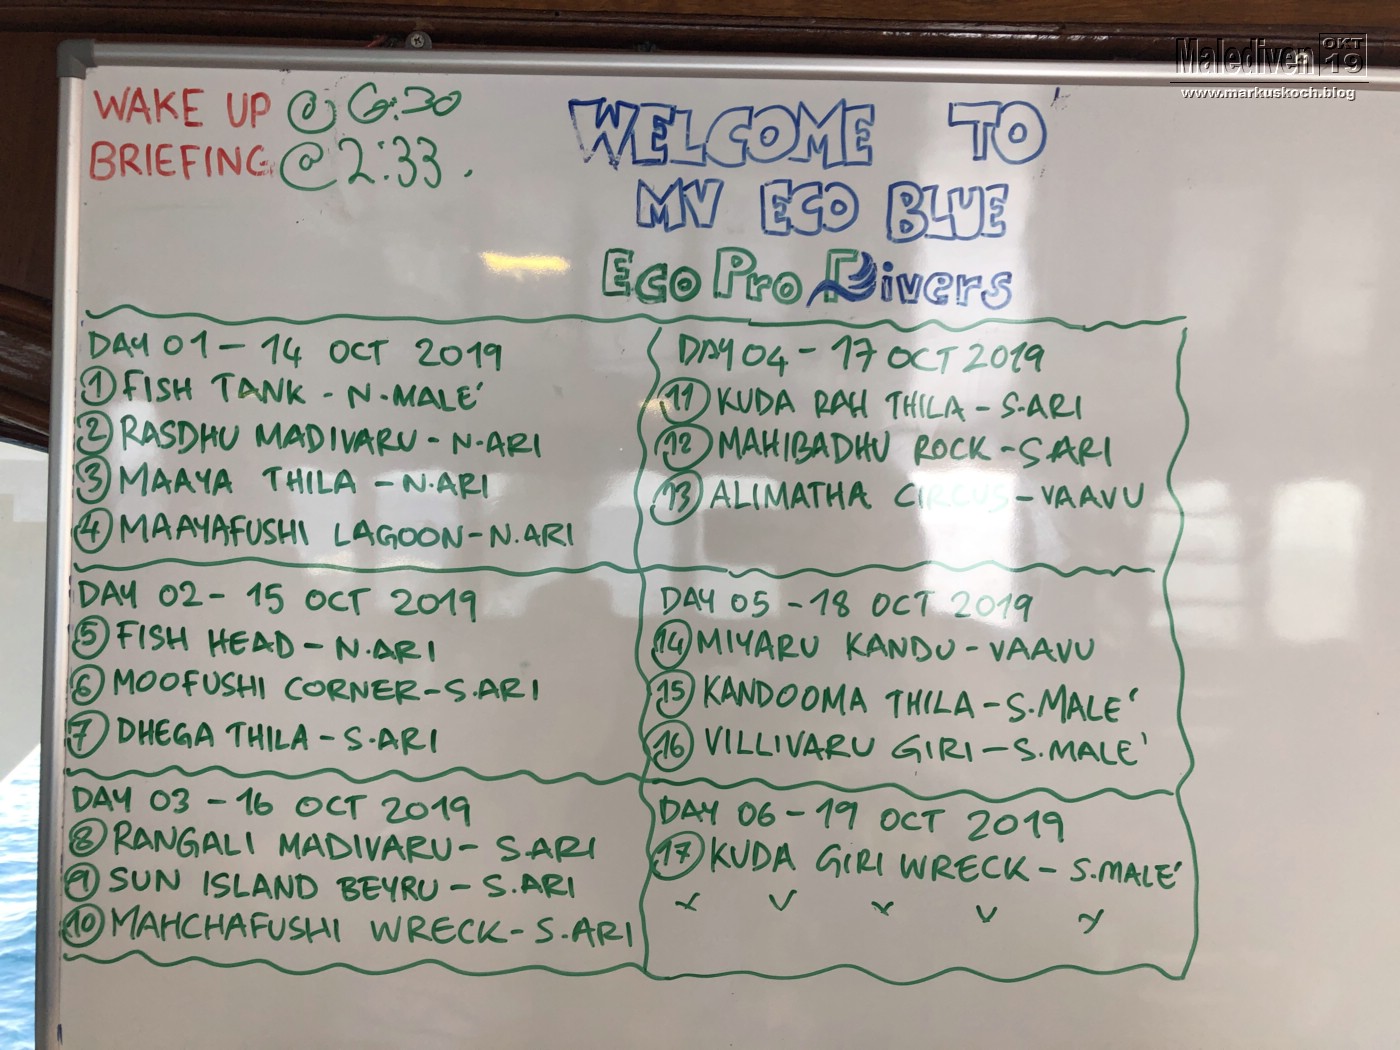 Malediven OKT 19
www.markuskoch.blog
WAKE UP @ 6:30
BRIEFING @ 2:33.
WELCOME TO
MV ECO BLUE
Eco Pro Divers
DAY 01 - 14 OCT 2019
1 FISH TANK - N.MALE'
2 RASDHU MADIVARU - N.ARI
3 MAAYA THILA - N.ARI
4 MAAYAFUSHI LAGOON - N.ARI
DAY 02 - 15 OCT 2019
5 FISH HEAD - N.ARI
6 MOOFUSHI CORNER - S.ARI
7 DHEGA THILA - S.ARI
DAY 03 - 16 OCT 2019
8 RANGALI MADIVARU - S.ARI
9 SUN ISLAND BEYRU - S.ARI
10 MAHCHAFUSHI WRECK - S.ARI
DAY 04 - 17 OCT 2019
11 KUDA RAH THILA - S.ARI
12 MAHIBADHU ROCK - S.ARI
13 ALIMATHA CIRCUS - VAAVU
DAY 05 - 18 OCT 2019
14 MIYARU KANDU - VAAVU
15 KANDOOMA THILA - S.MALE'
16 VILLIVARU GIRI - S.MALE'
DAY 06 - 19 OCT 2019
17 KUDA GIRI WRECK - S.MALE'